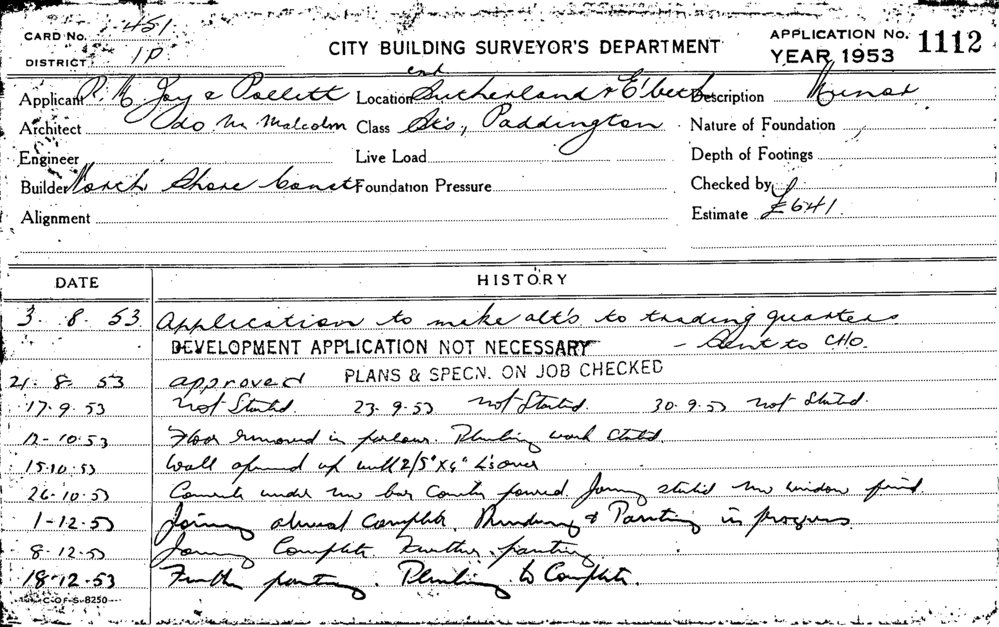 CARD No. 451
DISTRICT 1D
CITY BUILDING SURVEYOR'S DEPARTMENT
APPLICATION No. 1112
YEAR 1953
Applicant P. M. Joy & Pollett Location Sutherland & E'beth Description Minor
Architect M. Malcolm Class Sts, Paddington Nature of Foundation
Engineer Live Load Depth of Footings
Builder North Shore Const Foundation Pressure Checked by
Alignment Estimate £641.
DATE HISTORY
3. 8. 53 Application to make alt's to trading quarters
DEVELOPMENT APPLICATION NOT NECESSARY - Sent to CHO.
21. 8. 53 approved PLANS & SPECN. ON JOB CHECKED
17. 9. 53 Not Started. 23. 9. 53 Not Started. 30. 9. 53 not Started.
12-10.53 Floor removed in parlour. Plumbing work started.
15.10.53 Wall opened up with 2/5"x4" L's over
26.10.53 Concrete under new bar counter poured. Joinery started new window fixed.
1-12.53 Joinery almost complete. Rendering & Painting in progress.
8.12.53 Joinery Complete Further painting
18.12.53 Further painting. Plumbing to Complete.
C-OF-S-8250